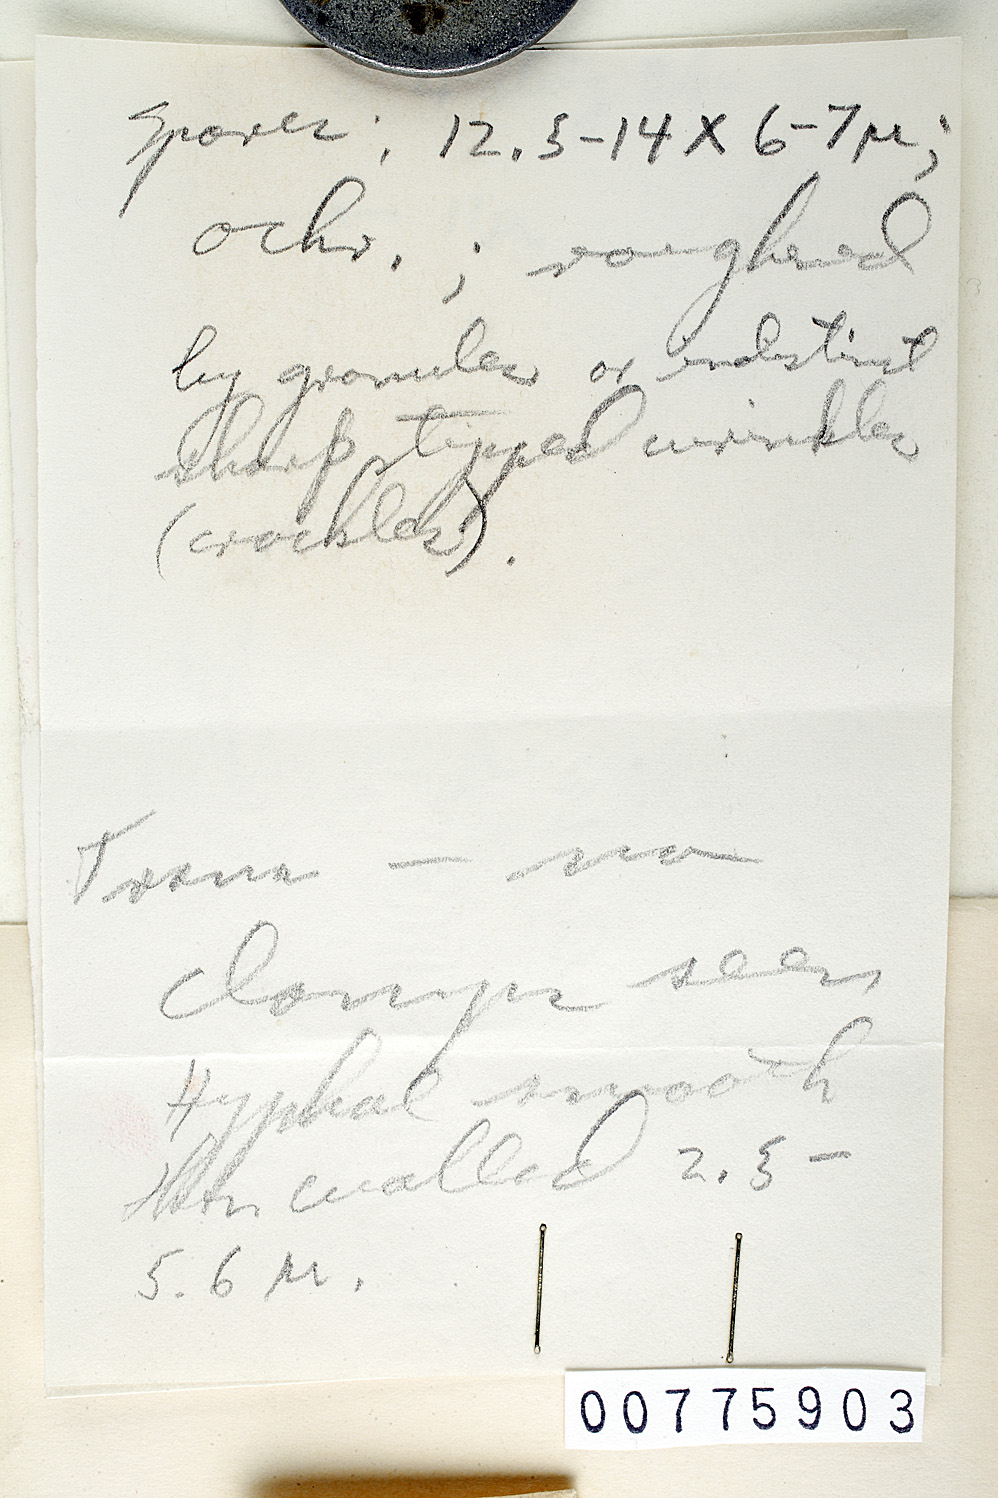 Spores: 12.5-14 X 6-7µ;
ochr.; roughened
by granules or indistinct
sharp stipped wrinkles
(crackles).
Trama — no
clamps seen
Hyphal smooth
thin walled 2.5-
5.6 µ.
00775903